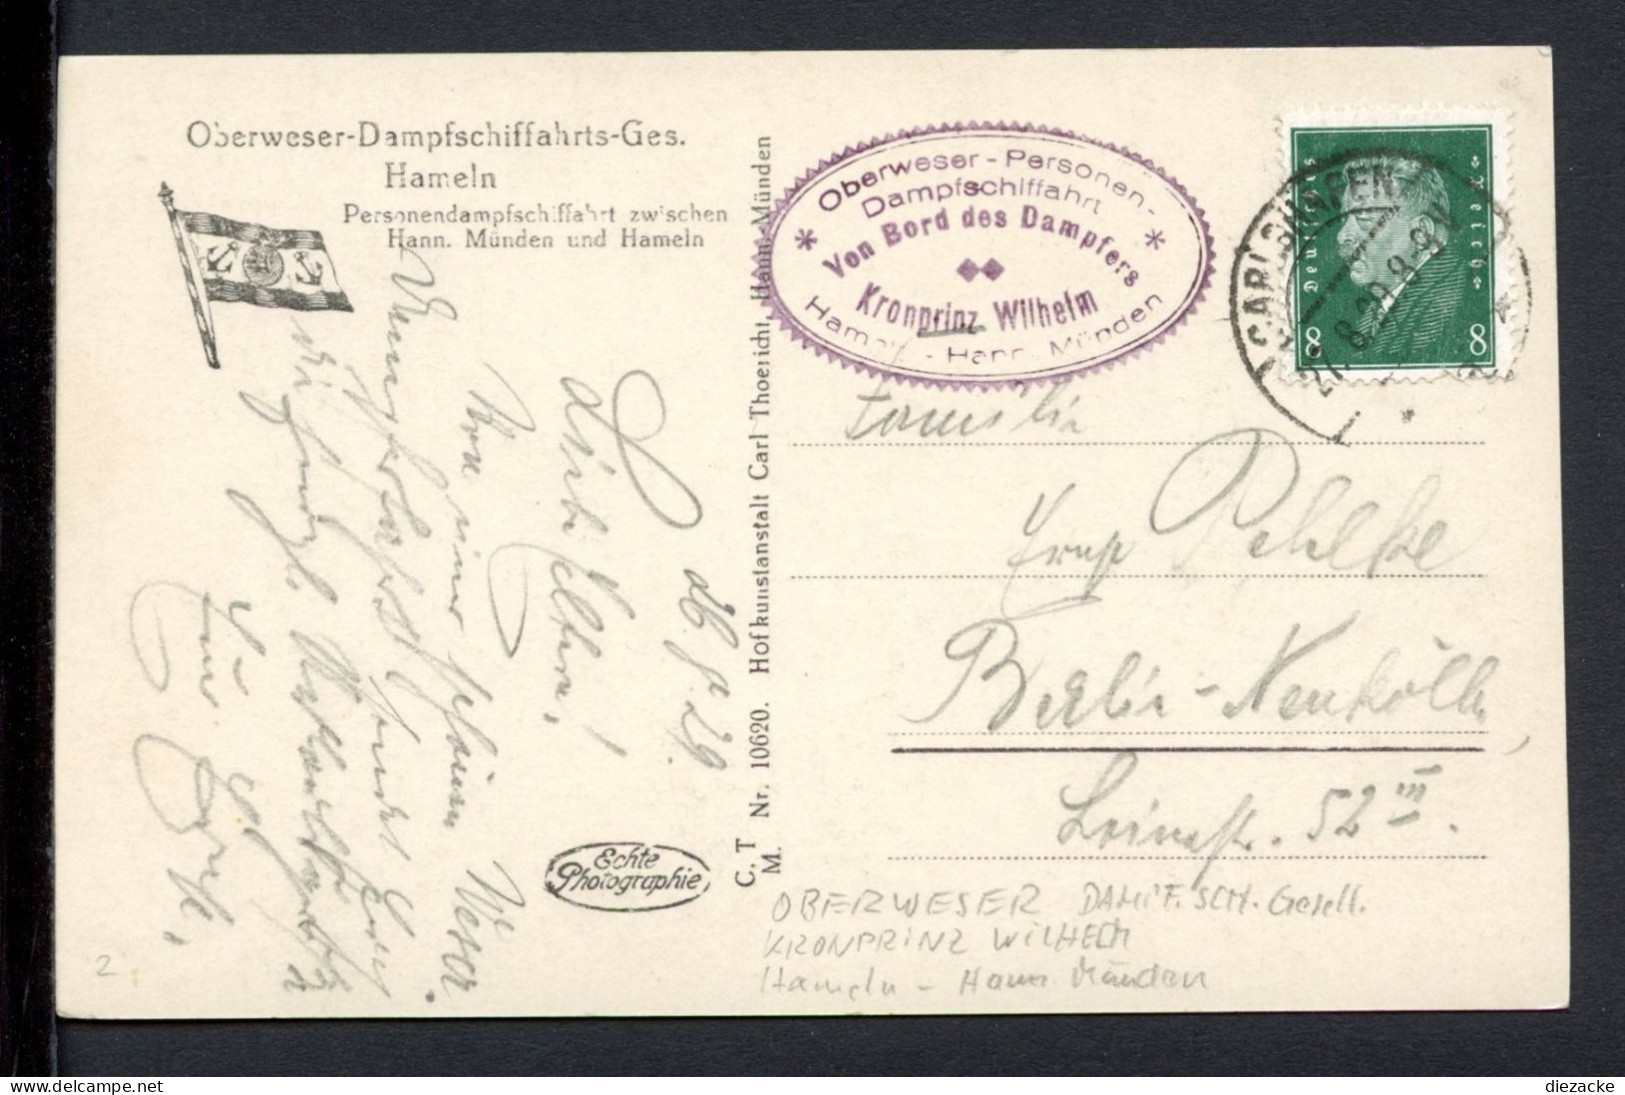 Oberweser-Dampfschiffahrts-Ges.
Hameln
Personendampfschiffahrt zwischen
Hann. Münden und Hameln
26.8.29.
Liebe Eltern,
Von einer schönen Weser
sendet Euch
die herzl.
Euer
Echte
Photographie
C. T
M.
Nr. 10620. Hofkunstanstalt Carl Thoericht, Hann.-Münden
Oberweser-Personen-
Dampfschiffahrt
* Von Bord des Dampfers *
Kronprinz Wilhelm
Hameln - Hann. Münden
CARLSHAFEN
Deutsches Reich
8 8
Familie
Ernst Pehlke
Berlin-Neukölln,
Leinestr. 52 III.
OBERWESER DAMPF.SCH. Gesell.
KRONPRINZ WILHELM
Hameln - Hann. Münden
2
diezacke